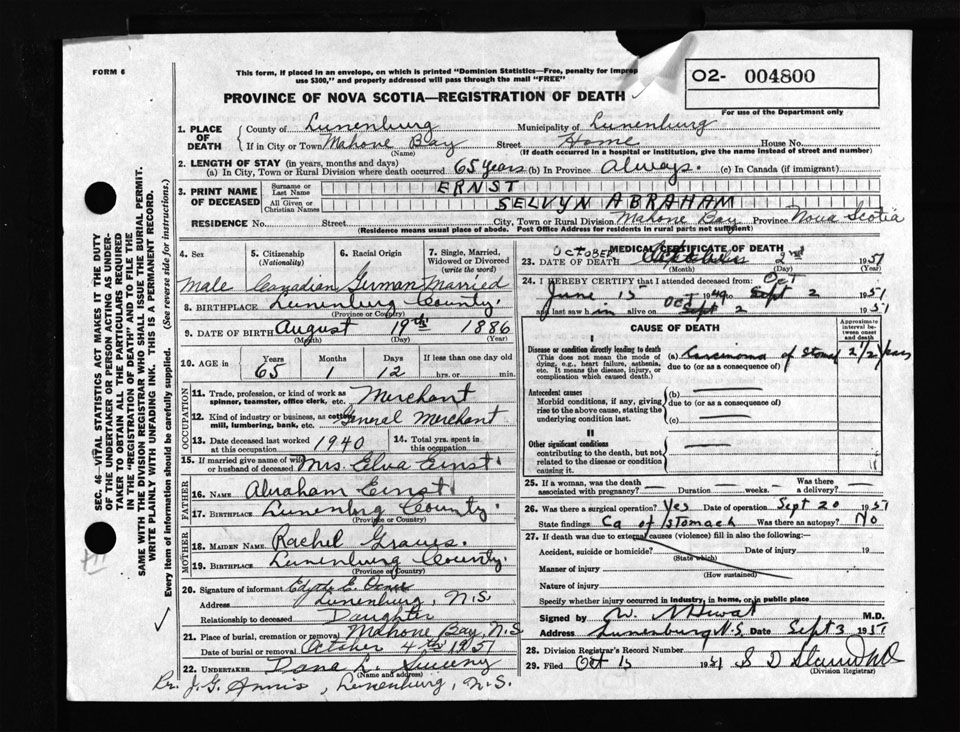 FORM 6
This form, if placed in an envelope, on which is printed "Dominion Statistics—Free, penalty for improp
use $300," and properly addressed will pass through the mail "FREE"
O2- 004800
PROVINCE OF NOVA SCOTIA—REGISTRATION OF DEATH
For use of the Department only
1. PLACE OF DEATH
County of Lunenburg Municipality of Lunenburg
If in City or Town Mahone Bay Street Home House No.
(Name) (If death occurred in a hospital or institution, give the name instead of street and number)
2. LENGTH OF STAY (in years, months and days)
(a) In City, Town or Rural Division where death occurred 65 years (b) In Province Always. (c) In Canada (if immigrant)
3. PRINT NAME OF DECEASED
Surname or Last Name ERNST
All Given or Christian Names SELVYN ABRAHAM
RESIDENCE No. Street City, Town or Rural Division Mahone Bay Province Nova Scotia
(Residence means usual place of abode. Post Office Address for residents in rural parts not sufficient)
4. Sex Male
5. Citizenship (Nationality) Canadian
6. Racial Origin German
7. Single, Married, Widowed or Divorced (write the word) Married
8. BIRTHPLACE Lunenburg County.
(Province or Country)
9. DATE OF BIRTH August 19th 1886
(Month) (Day) (Year)
10. AGE in Years Months Days If less than one day old
65 1 12 hrs. or min.
OCCUPATION
11. Trade, profession, or kind of work as spinner, teamster, office clerk, etc. Merchant
12. Kind of industry or business, as cotton mill, lumbering, bank, etc. General Merchant
13. Date deceased last worked at this occupation 1940
14. Total yrs. spent in this occupation
15. If married give name of wife or husband of deceased Mrs. Elva Ernst
FATHER
16. NAME Abraham Ernst
17. BIRTHPLACE Lunenburg County.
(Province or Country)
MOTHER
18. MAIDEN NAME Rachel Graves.
19. BIRTHPLACE Lunenburg County.
(Province or Country)
20. Signature of informant E.
Address Lunenburg, N.S.
Relationship to deceased Daughter
21. Place of burial, cremation or removal Mahone Bay, N.S
Date of burial or removal October 4th 1951
22. UNDERTAKER Dana L. Sweeny
(Name and address)
Per. J. G. Annis, Lunenburg, N.S.
MEDICAL CERTIFICATE OF DEATH
OCTOBER
23. DATE OF DEATH 2nd 1951
(Month) (Day) (Year)
24. I HEREBY CERTIFY that I attended deceased from:
OCT
June 15 1949 to Sept 2 1951
OCT
and last saw him alive on Sept 2 1951
CAUSE OF DEATH
Approximate interval between onset and death
I
Disease or condition directly leading to death
(This does not mean the mode of dying, e.g., heart failure, asthenia, etc. It means the disease, injury, or complication which caused death.)
(a) Carcinoma of Stomach 2 1/2 years
due to (or as a consequence of)
Antecedent causes
Morbid conditions, if any, giving rise to the above cause, stating the underlying condition last.
(b)
due to (or as a consequence of)
(c)
II
Other significant conditions
contributing to the death, but not related to the disease or condition causing it.
25. If a woman, was the death associated with pregnancy? Duration weeks. Was there a delivery?
26. Was there surgical operation? Yes Date of operation Sept 20 1951
State findings Ca of Stomach Was there an autopsy? No
27. If death was due to external causes (violence) fill in also the following:—
Accident, suicide or homicide? Date of injury 19
(State which)
Manner of injury
(How sustained)
Nature of injury
Specify whether injury occurred in industry, in home, or in public place
Signed by M.D.
Address Lunenburg N.S. Date Sept 3 1951
28. Division Registrar's Record Number
29. Filed Oct 15 1951 S D
(Division Registrar)
SEC. 46—VITAL STATISTICS ACT MAKES IT THE DUTY
OF THE UNDERTAKER OR PERSON ACTING AS UNDER-
TAKER TO OBTAIN ALL THE PARTICULARS REQUIRED
IN THE "REGISTRATION OF DEATH" AND TO FILE THE
SAME WITH THE DIVISION REGISTRAR WHO SHALL ISSUE THE BURIAL PERMIT.
WRITE PLAINLY WITH UNFADING INK. THIS IS A PERMANENT RECORD.
Every item of information should be carefully supplied. (See reverse side for instructions.)